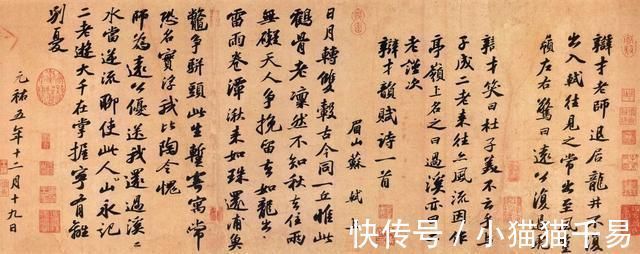 辯才老師退居龍井不復
出入軾往見之常出至
嶺左右驚曰遠公復過
辯才笑曰杜子美不云乎與
子成二老來往亦風流因作
亭嶺上名之曰過溪亦曰
二老謹次
辯才韻賦詩一首
眉山蘇軾上
日月轉雙轂古今同一丘惟此
鶴骨老凜然不知秋去住兩
無礙天人爭挽留去如龍出
雷雨卷潭湫來如珠還浦魚
鱉爭駢頭此生暫寄寓常
恐名實浮我比陶令愧
師為遠公優送我還過溪溪
水當逆流聊使此人山永記
二老遊大千在掌握寧有離
別憂
元祐五年十二月十九日
快传号/小猫猫千易